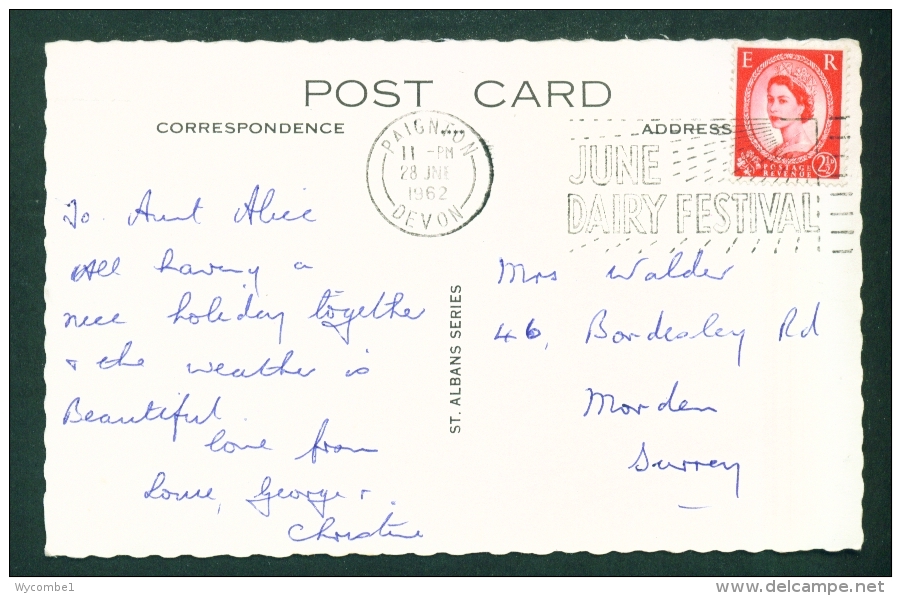 POST CARD
CORRESPONDENCE
ADDRESS
PAIGNTON
11 - PM
28 JNE
1962
DEVON
JUNE
DAIRY FESTIVAL
E R
POSTAGE
REVENUE
2½D
To Aunt Alice
All having a
nice holiday together
& the weather is
Beautiful.
love from
George &
Christine
ST. ALBANS SERIES
Mrs Walder
46, Bordesley Rd
Morden
Surrey
Wycombe1
delcampe.net